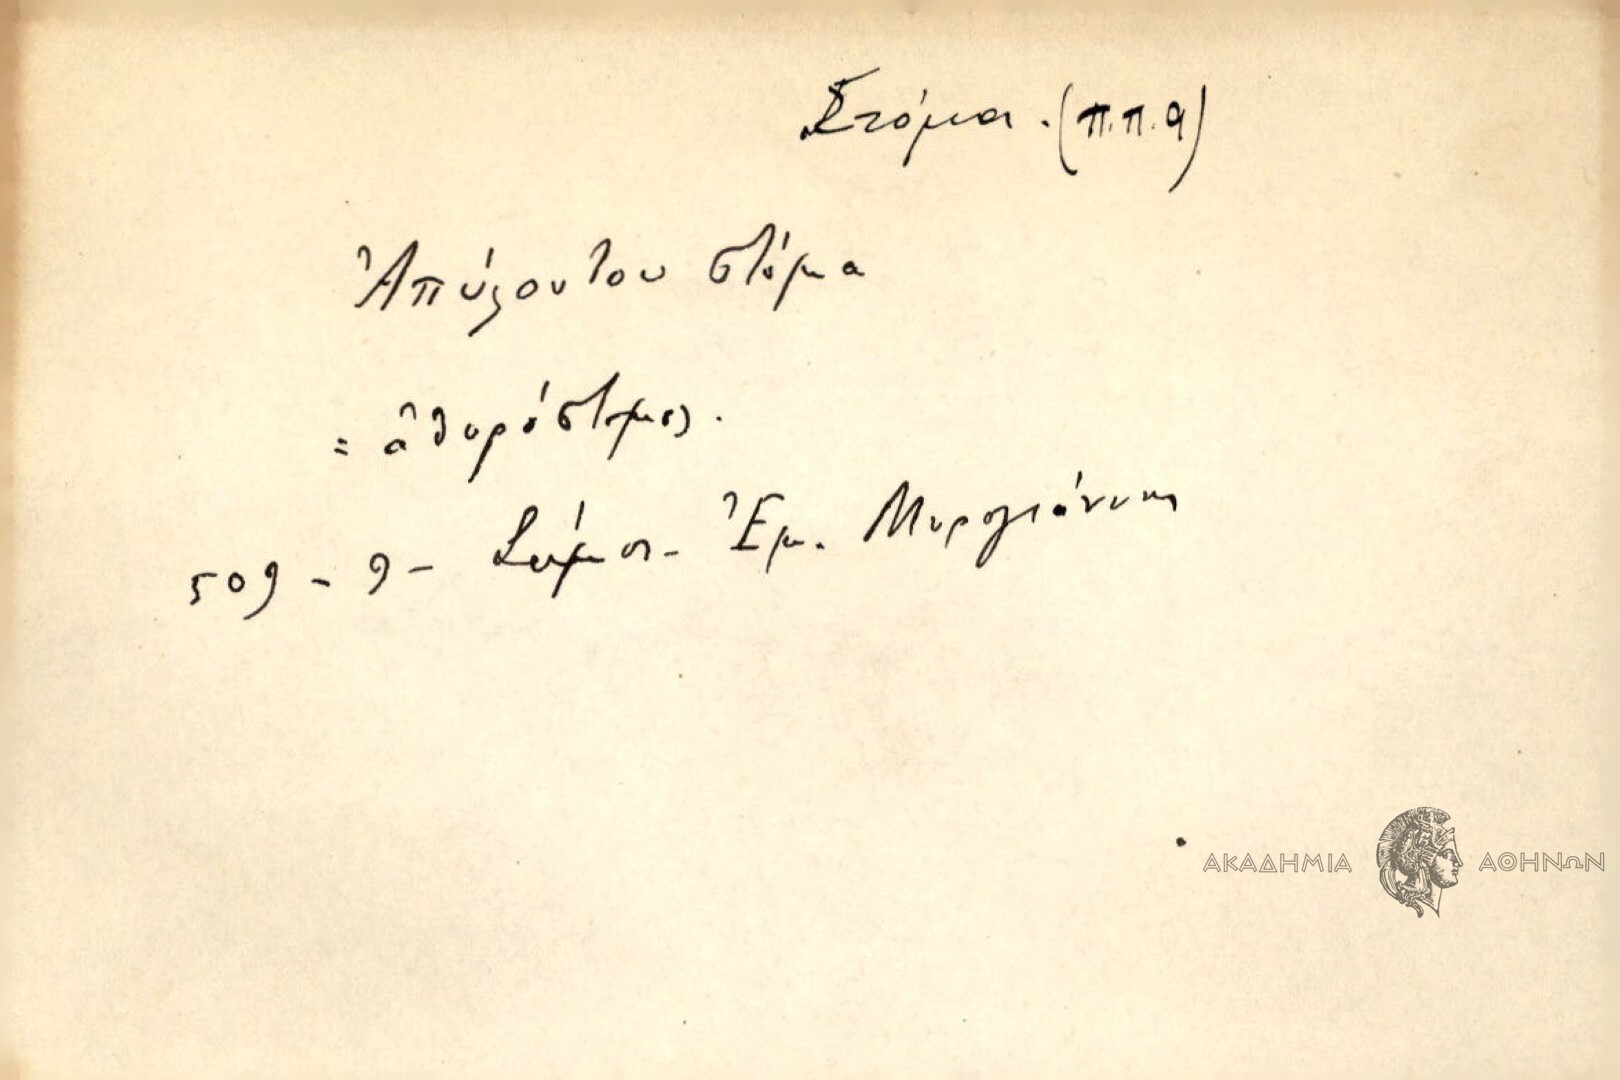 Στόμα. (π.π.9)
Ἀπύλουτου στόμα
= ἀθυρόστομος.
509 - 9 - Σάμος - Ἐμ. Μυρογιάννη
ΑΚΑΔΗΜΙΑ ΑΘΗΝΩΝ